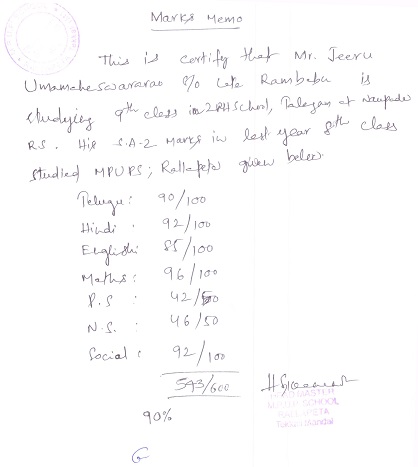 Marks Memo
This is certify that Mr. Jeeru
Umamaheswararao S/o Late Rambabu is
studying 9th class in ZPH School, Talagam at Naupada
RS. His S.A-2 Marks in last year 8th class
studied MPUPS; Rallapeta given below.
Telugu: 90/100
Hindi : 92/100
English: 85/100
Maths: 96/100
P.S : 42/50
N.S. : 46/50
Social : 92/100
543/600
90%
MASTER
SCHOOL